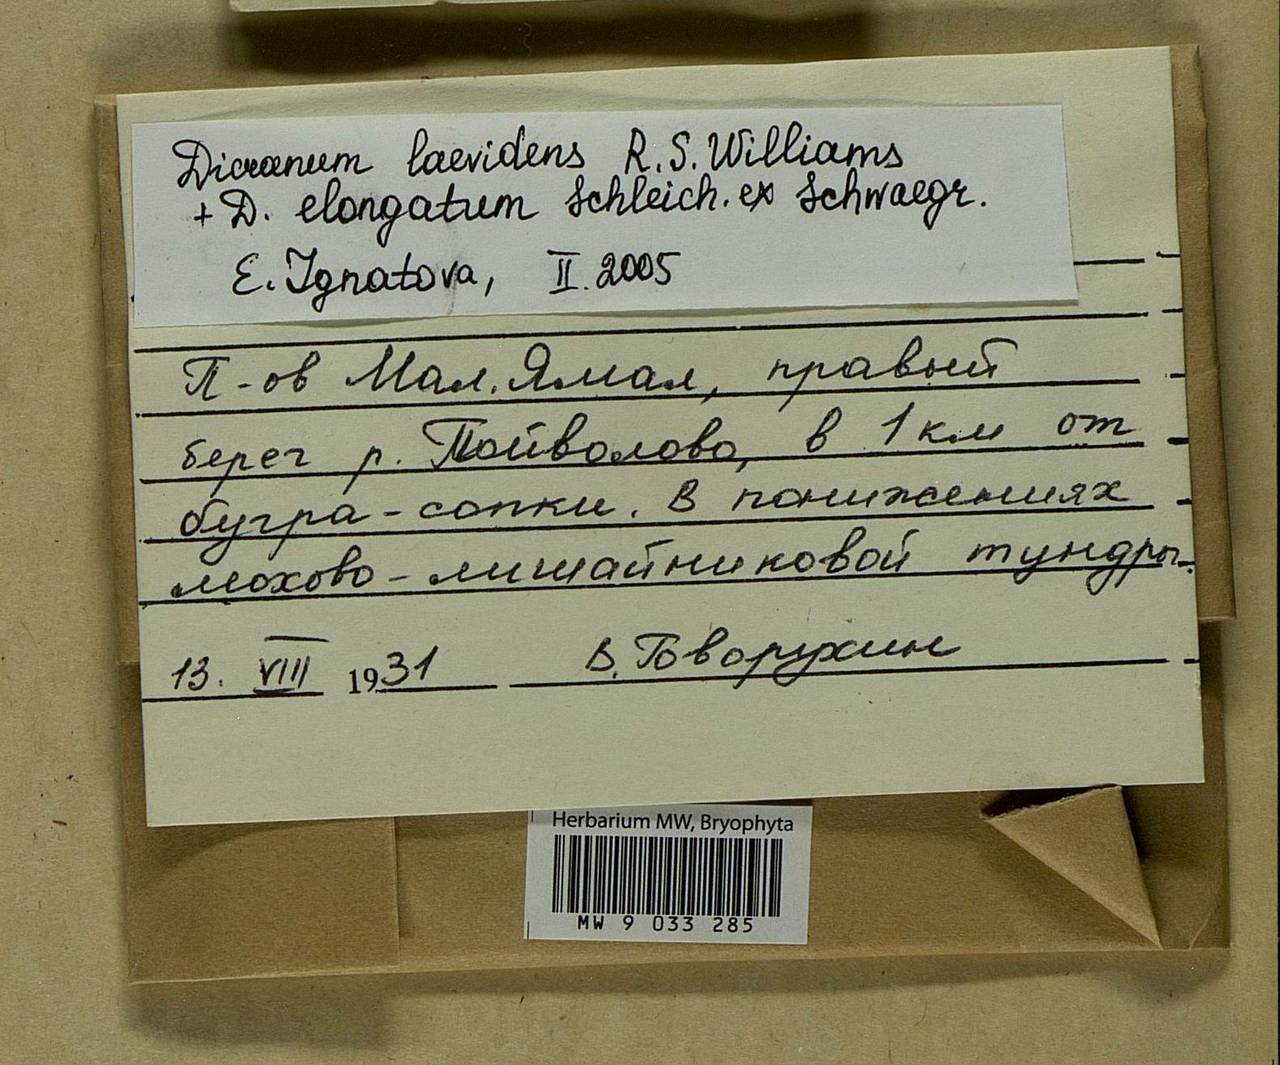 Dicranum laevidens R.S.Williams
+ D. elongatum Schleich. ex Schwaegr.
E. Ignatova, II. 2005
П-ов Мал. Ямал, правый
берег р. Пойволово, в 1 км от
бугра-сопки. В понижениях
мохово-лишайниковой тундры.
13. VIII 1931 В. Говорухин
Herbarium MW, Bryophyta
MW 9 033 285